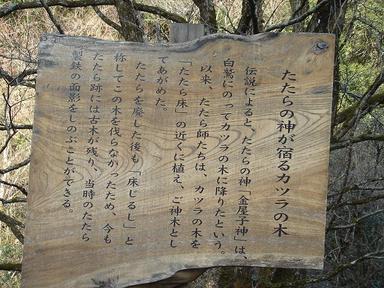 たたらの神が宿るカツラの木
伝説によると、たたらの神「金屋子神」は、
白鷺にのってカツラの木に降りたという。
以来、たたら師たちは、カツラの木を
「たたら床」の近くに植え、ご神木とし
てあがめた。
たたらを廃した後も「床じるし」と
称してこの木を伐らなかったため、今も
たたら跡には古木が残り、当時のたたら
製鉄の面影をしのぶことができる。